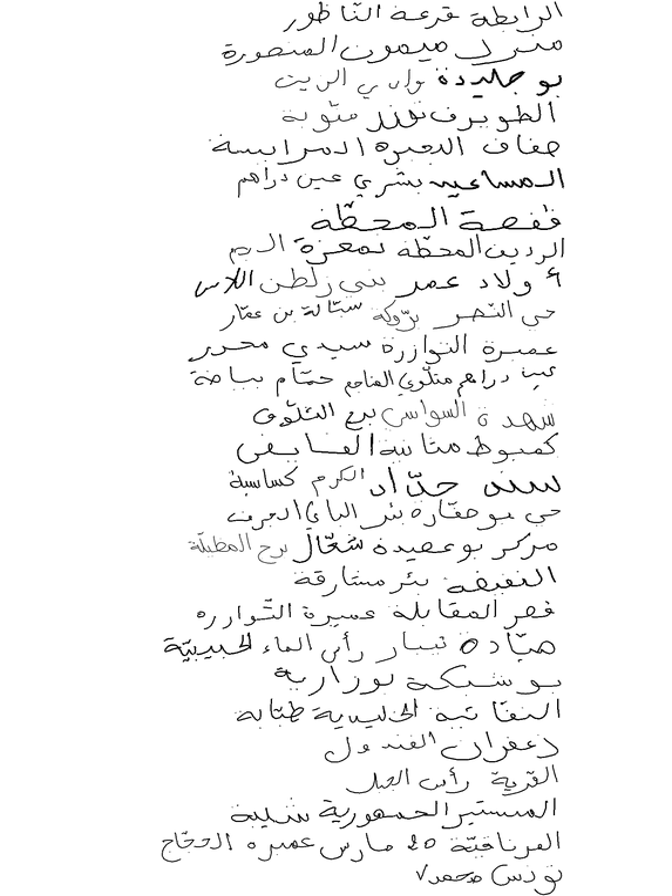 الرابطة قرعة الناظور
منزل ميمون المنصورة
بوجليدة وادي الزيت
الطويرف نقز منوبة
حفاف الدمرايسة
المساعيد بشري عين دراهم
قفصة المحطة
الرديف المحطة نمعزة الدجم
أولاد عمر بني زلطن اللاس
حي النصر بروكة ستالة بن عمار
عميرة التوازرة سيدي محرز
عين دراهم متلوي المناجم حمام بياضة
شهدة السواسي برج التلوق
كمبوط متانية الفايض
سند حداد الكرم كساسبة
حي بوحفارة بئر الباي الجرف
مركز بوعصيدة شعال برج المظيلة
النفيضة بئر مشارقة
قصر المقابلة عميرة التوازره
صيادة تيبار رأس الماء الحبيبية
بوشبكة نوزارية
النفاتية الخليدية طبابة
زعفران الفندول
القرية رأس الجبل
المنستير الجمهورية شليبة
الفرناقية 20 مارس عميره الحجاج
تونس محمد٧